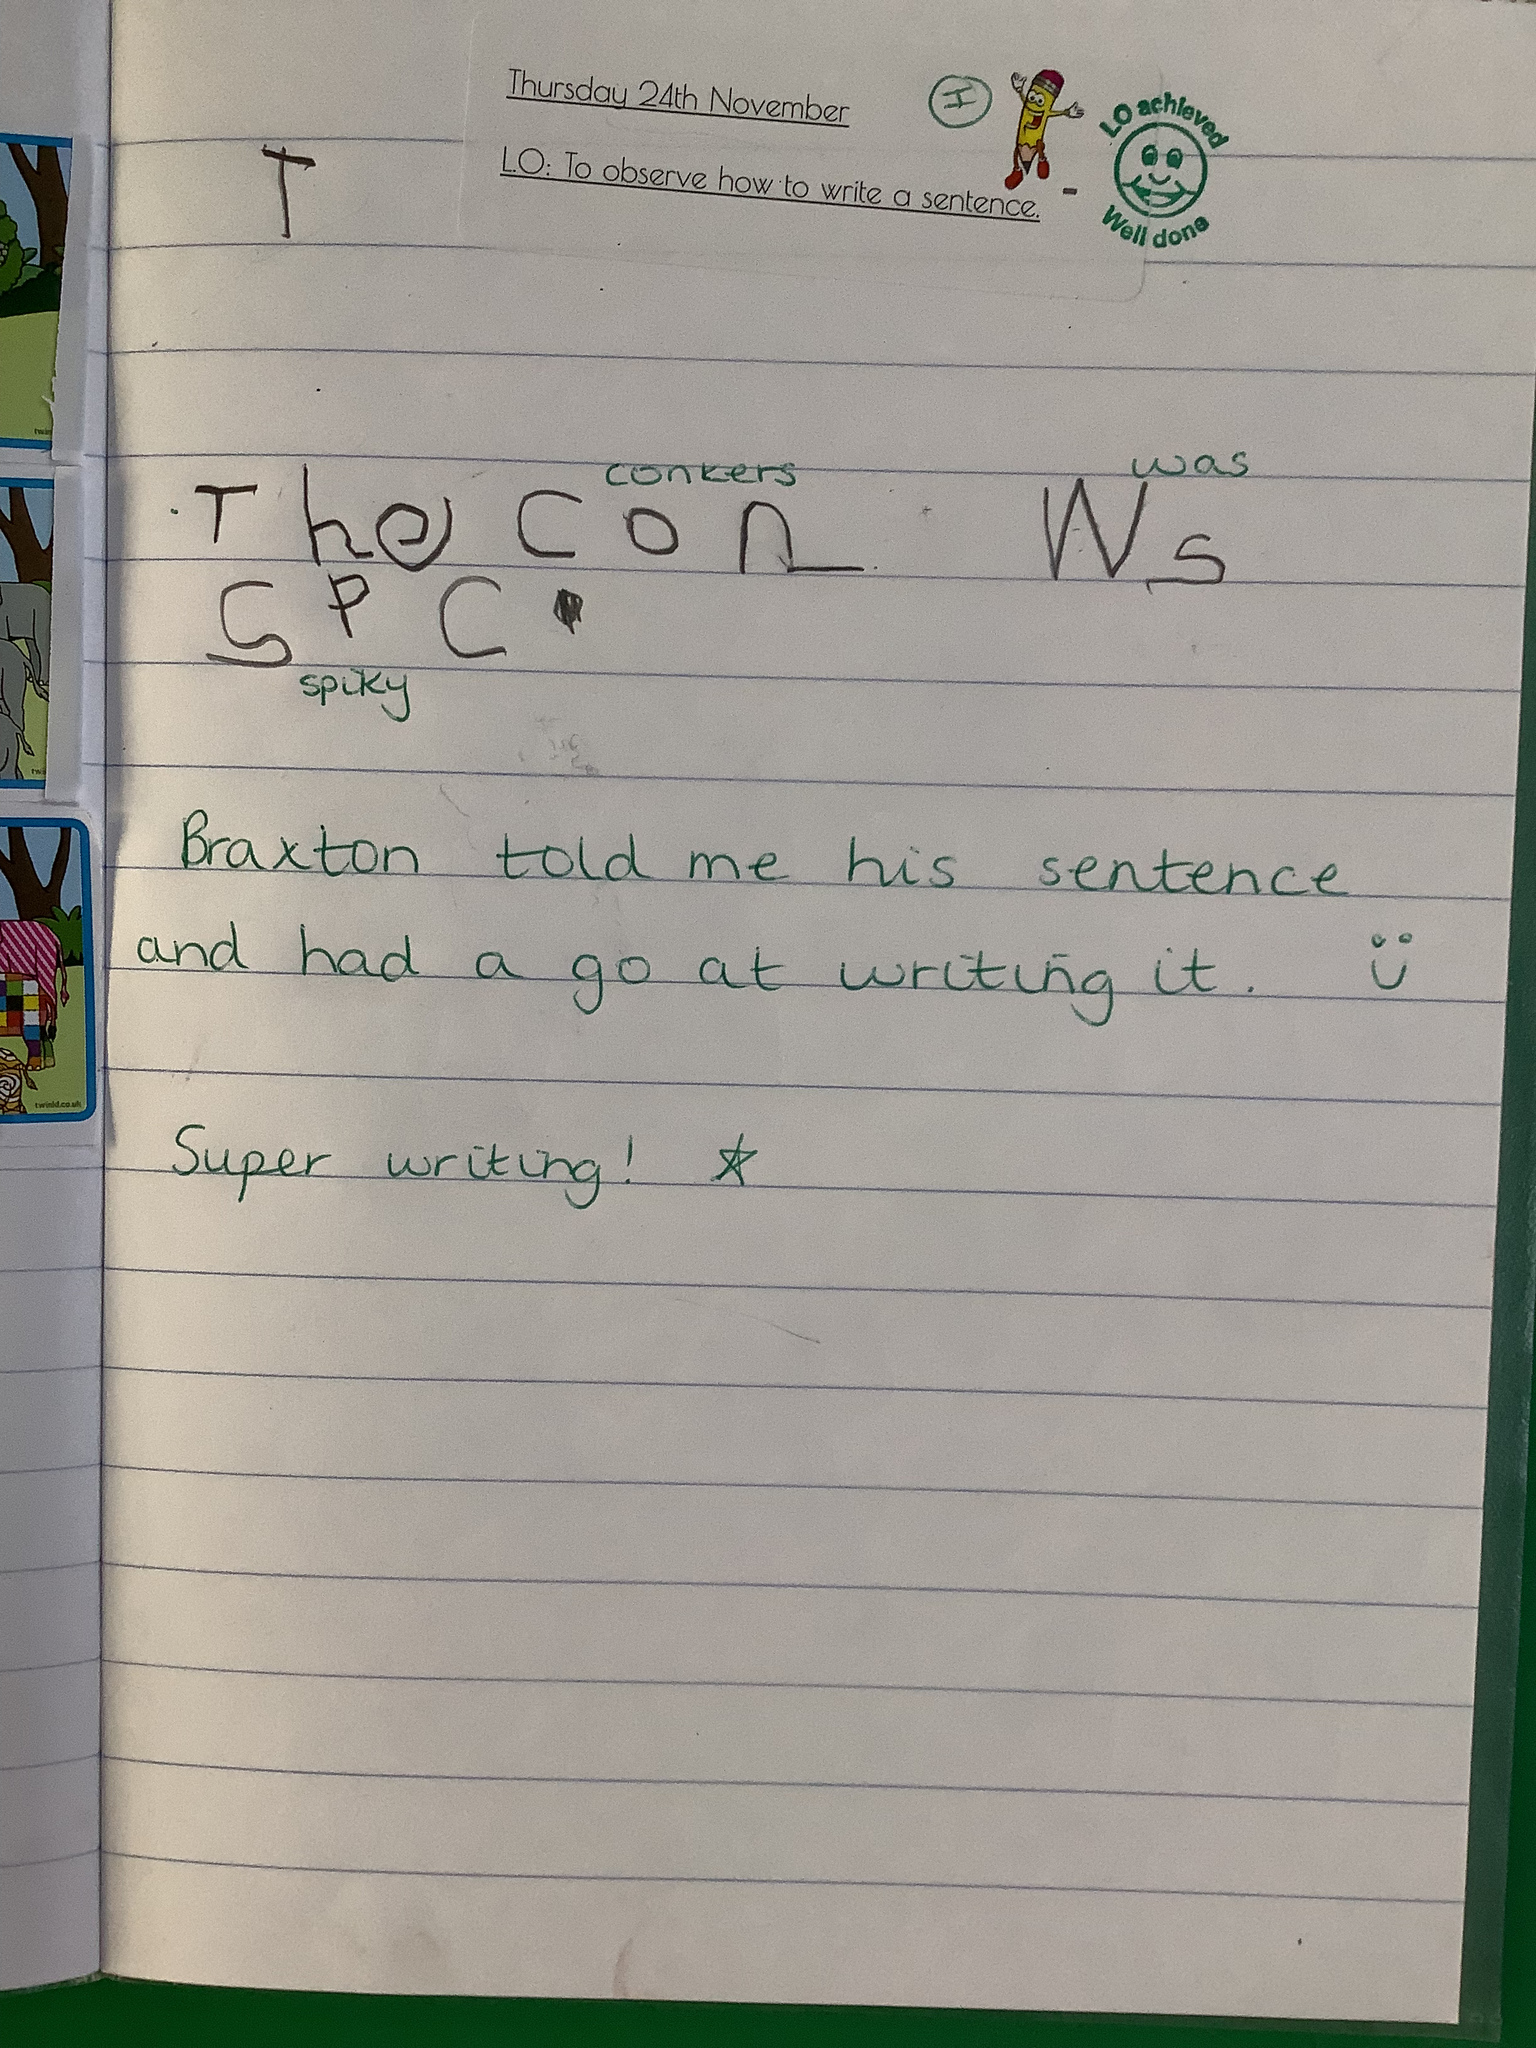 Thursday 24th November
I
LO achieved
Well done
LO: To observe how to write a sentence.
T
conkers
was
The con Ws
SPC.
spiky
Braxton told me his sentence
and had a go at writing it.
Super writing!
twinkl.co.uk